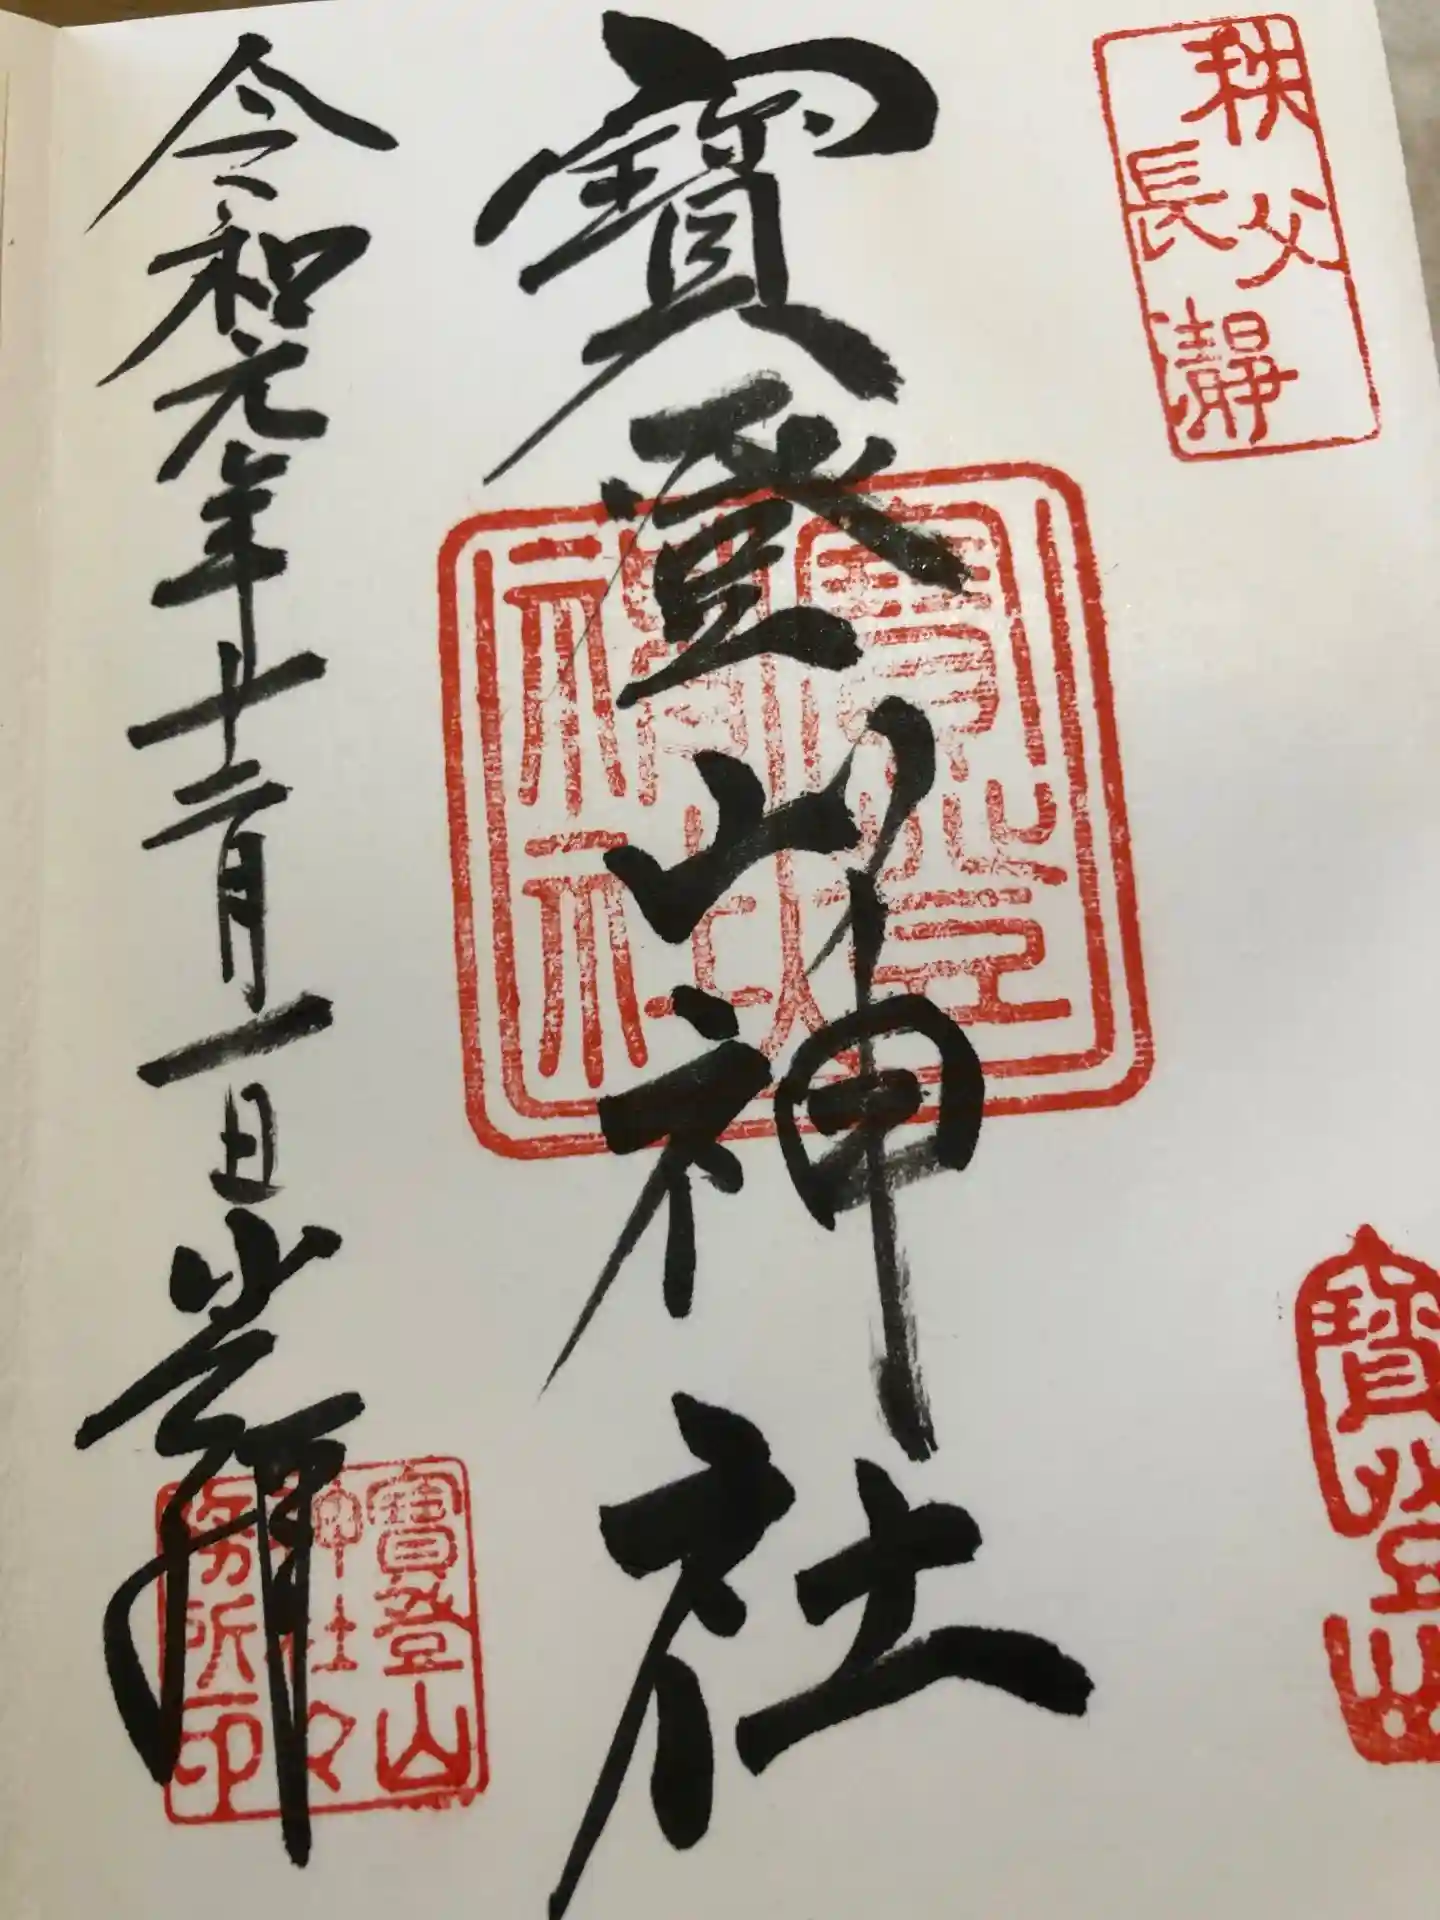 秩父
長瀞
寳登山
寳登山神社
寳登
神社
令和元年十二月一日参拝
寳登山
神社々
務所印